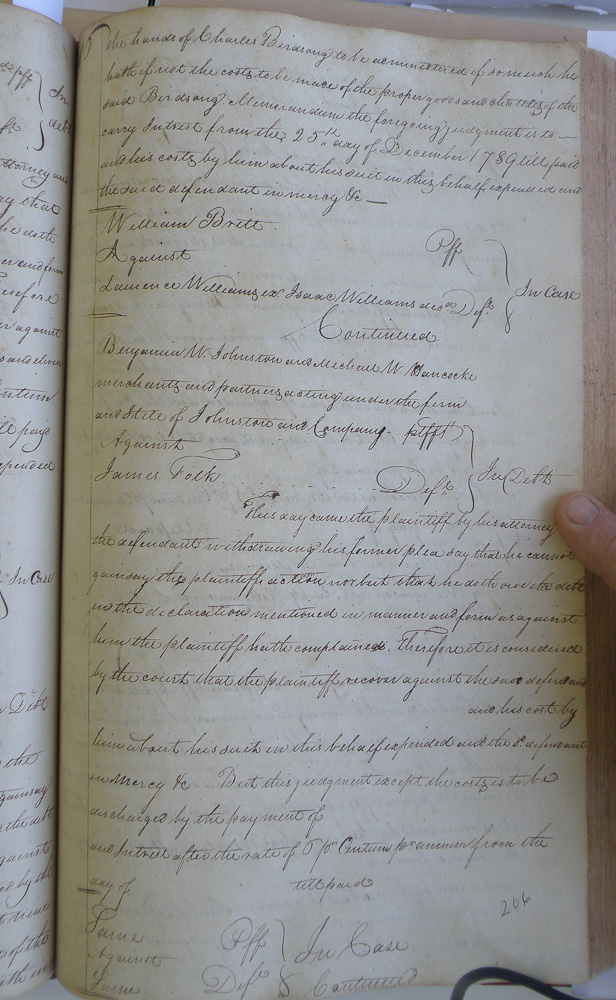 the hands of Charles Birdsong to be administered if so much he
hath if not the costs to be made of the proper goods and chattels of the
said Birdsong Memorandum the foregoing judgment is to —
carry Intrest from the 25th day of December 1789 till paid
and his costs by him about his suit in this behalf expended and
the said defendant in mercy &c —
William Britt
Plff
Against
In Case
Laurence Williams ex. Isaac Williams decd Deft
Continued
Benjamin W. Johnston and Michael W. Hancocke
merchants and partners acting under the firm
and Stile of Johnston and Company. plfft
Against
In Debt
James Folk
Deft
This day came the plaintiff by his attorney
the defendant withdrawing his former plea say that he cannot
gainsay the plaintiffs action nor but that he doth owe the debt
in the declaration mentioned in manner and form as against
him the plaintiff hath complained. Therefore it is considered
by the court that the plaintiff recover against the said defendant
and his cost by
him about his suit in this behalf expended and the sd. defendant
in Mercy &c But this judgment except the costs is to be
discharged by the payment of
and Intrest after the rate of 5 pr Centum pr annum from the
day of till paid
206
Same Plff
Against In Case
Same Deft Continued